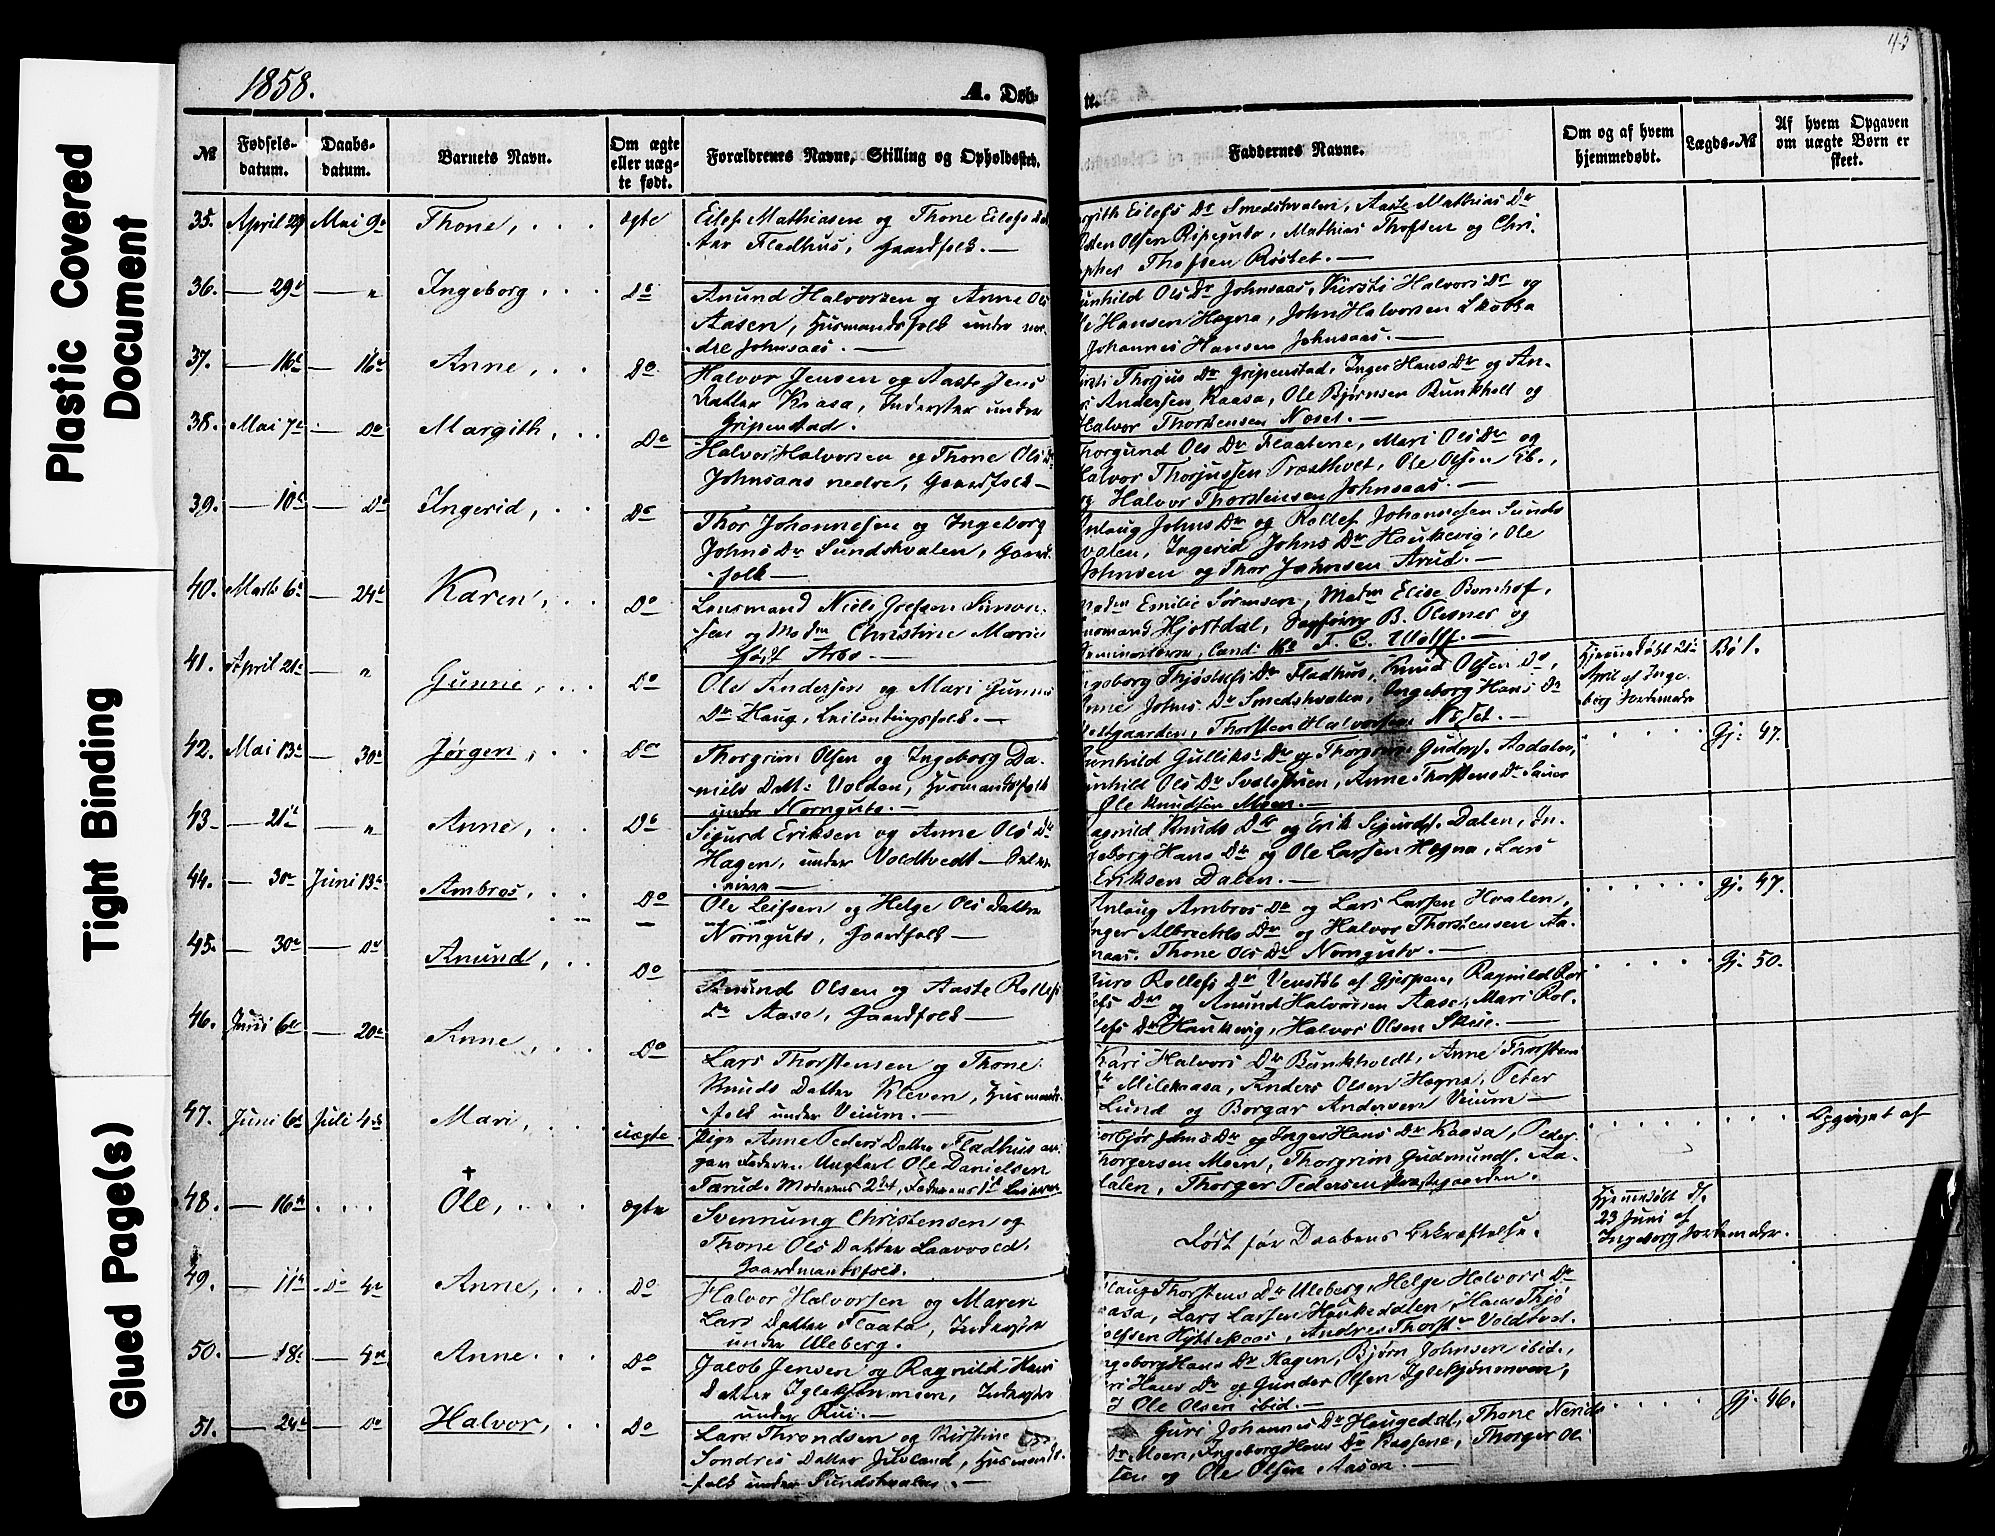 Plastic Covered
Document
Tight Binding
Glued Page(s)
45
1858.
A. Døb-
te.
№
Fødsels-
datum.
Daabs-
datum.
Barnets Navn.
Om ægte
eller uæg-
te født.
Forældrenes Navne, Stilling og Opholdssted.
Faddernes Navne.
Om og af hvem
hjemmedøbt.
Lægds-№
Af hvem Opgaven
om uægte Børn er
skeet.
35. April 29 Mai 9de Thone, ægte
Eilef Mathiasen og Thone Eilefs Dat
ter Fladhus, Gaardfolk.
Eilefs Dr Smedshvalen, Aaste Mathias Dr
Olsen Ripegutu, Mathias Thofsen og Chri-
Thofsen Røset.
36. 29de " Ingeborg, Do
Anund Halvorsen og Anne Ols
Aasen, Husmandsfolk under nor-
dre Johnsaas.
Ols Dr Johnsaas, Kirsti Halvors Dr og
Hansen Hogna, John Halvorsen Skobba
Johannes Hansen Johnsaas.
37. 16de 16de Anne, Do
Halvor Jensen og Aaste Jens
Datter Kaasa, Inderster under
Gripenstad.
Thorjus Dr Gripenstad, Inger Hans Dr og An-
Andersen Kaasa, Ole Bjørnsen Bunkholt og
Halvor Thorstensen Noset.
38. Mai 7de Do Margith, Do
Halvor Halvorsen og Thone Ols Dr
Johnsaas nedre, Gaardfolk
Thorgund Ols Dr Flaatene, Mari Ols Dr og
Halvor Thorjussen Præsthvet, Ole Olsen Ib.,
og Halvor Thorstensen Johnsaas.
39. 10de Do Ingerid, Do
Thor Johannesen og Ingeborg
Johns Dr Sundskvalen, Gaard-
folk
Anlaug Johns Dr og Rollef Johannesen Sunds
kvalen, Ingerid Johns Dr Haukevig, Ole
Johnsen og Thor Johnsen Aarud.
40. Marts 6te 24de Karen, Do
Lensmand Niels Simon-
sen og Madm Christine Marie
født Arbo
Emilie Sørensen, Madm Elise Bomhof,
Hjortdal, B. Olesner og
Cand: F. C. Wolff.
41. April 21de " Gunne, Do
Ole Andersen og Mari Gunnes
Dr Haug, Leilendingsfolk.
Ingeborg Thjøstels Dr Fladhus, Knud Olsen Do,
Anne Johns Dr Smedshvalen, Ingeborg Hans Dr
Vestgaarden, Thorsten Halvorsen Noset.
Hjemmedøbt 21de
April af Inge-
borg Jordemoder
Bø 1.
42. Mai 13de 30de Jørgen, Do
Thorgrim Olsen og Ingeborg Da-
niels Datt: Volden, Husmandsfolk
under Nornguto.
Gunhild Gulliks Dr og Thorgrim Gudmss. Aadalen,
Gunhild Ols Dr Svalestuen, Anne Thorstens Dr Sauer
Ole Knudsen Moen.
Gj. 47.
43. 21de " Anne, Do
Sigurd Eriksen og Anne Ols Dr
Hagen, under Voldtvedt
Ragnild Knuds Dr og Erik Sigurds. Dalen, In-
geborg Hans Dr og Ole Larsen Hogna, Lars
Eriksen Dalen.
44. 30de Juni 13de Ambros, Do
Ole Leifsen og Helge Ols Datter
Nornguto, Gaardfolk
Anlaug Ambros Dr og Lars Larsen Hvalen,
Inger Albrechts Dr og Halvor Thorstensen Aa-
naas. Thone Ols Dr Nornguto.
Gj. 47.
45. 30de Do Anund, Do
Anund Olsen og Aaste Rollefs
Dr Aase, Gaardfolk
Guro Rollefs Dr Venstøb af Gjerpen, Ragnild Rol
lefs Dr og Anund Halvorsen Aase, Mari Rol-
lefs Dr Haukevig, Halvor Olsen Skue.
Gj. 50.
46. Juni 6te 20de Anne, Do
Lars Thorstensen og Thone
Knuds Datter Kleven, Husmands
folk under Veium.
Kari Halvors Dr Bunkholdt, Anne Thorstens
Dr Milekaasa, Anders Olsen Hogna, Peter
Lund og Borgar Andersen Veium
47. Juni 6te Juli 4de Mari, uægte
Pige Anne Peders Datter Fladhus an-
gav Faderen Ungkarl Ole Danielsen
Tærud. Moderens 2det, Faderens 1ste Leiermaal
Torbjør Johns Dr og Inger Hans Dr Kaasa, Peder
Thorgersen Moen, Thorgrim Gudmunds. Aa-
dalen, Thorger Pedersen Præstegaarden.
Opgivet af
48. 16de Ole, ægte
Svennung Christensen og
Thone Ols Datter Laavold.
Gaardmandsfolk.
Død før Daabens Bekræftelse.
Hjemmedøbt d.
23 Juni af
Ingeborg Jordemoder.
49. 11te Do 4de Anne, Do
Halvor Halvorsen og Maren
Lars Datter Flaata, Inderster
under Uleberg.
Thorstens Dr Uleberg, Helge Halvors Dr
Kaasa, Lars Larsen Haukedalen, Hans Thjo
Hyttekaas, Andres Thorst. Voldtvet.
50. 18de 4de Anne. Do
Jacob Jensen og Ragnild Hans
Datter Iglekjønmoen, Inderster
under Rui.
Ingeborg Hans Dr Hagen, Bjørn Johnsen ibid.,
Hans Dr og Gunder Olsen Iglekjønmoen,
Ole Olsen ibid.
51. 24de Do Halvor, Do
Lars Throndsen og Kirstine
Sondres Datter Juveland, Husmands-
folk under Sundskvalen.
Guri Johannes Dr Haugedal, Thone Nerids
Dr Moen, Ingeborg Hans Dr Kaasene, Thorger Ol-
sen og Ole Olsen Aasen.
Gj. 46.